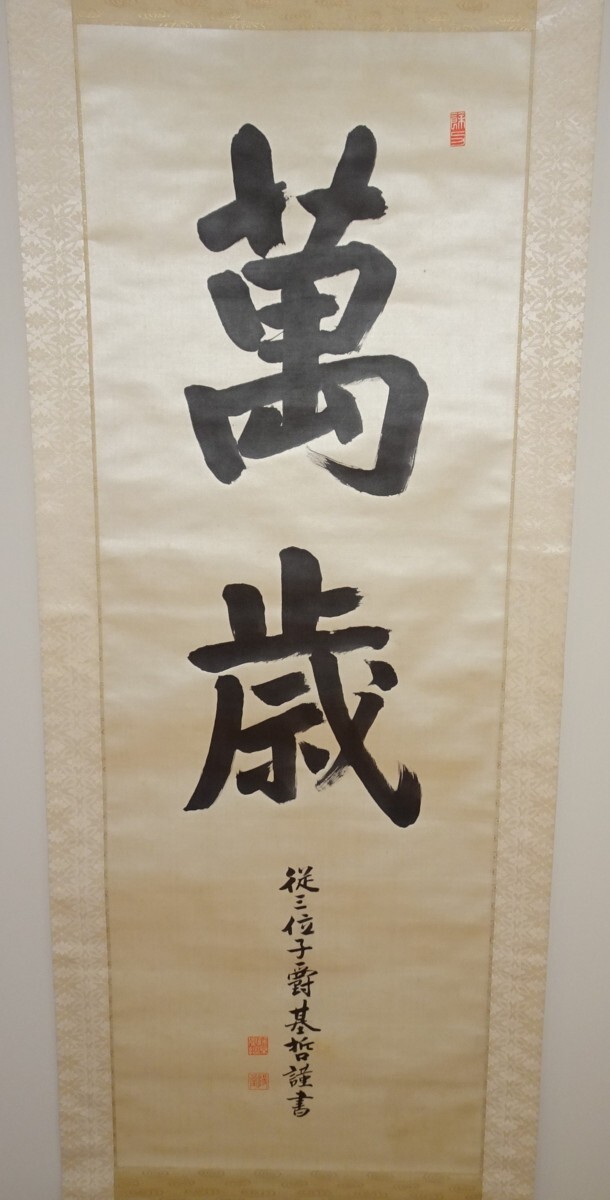 萬歳
從三位子爵基哲謹書